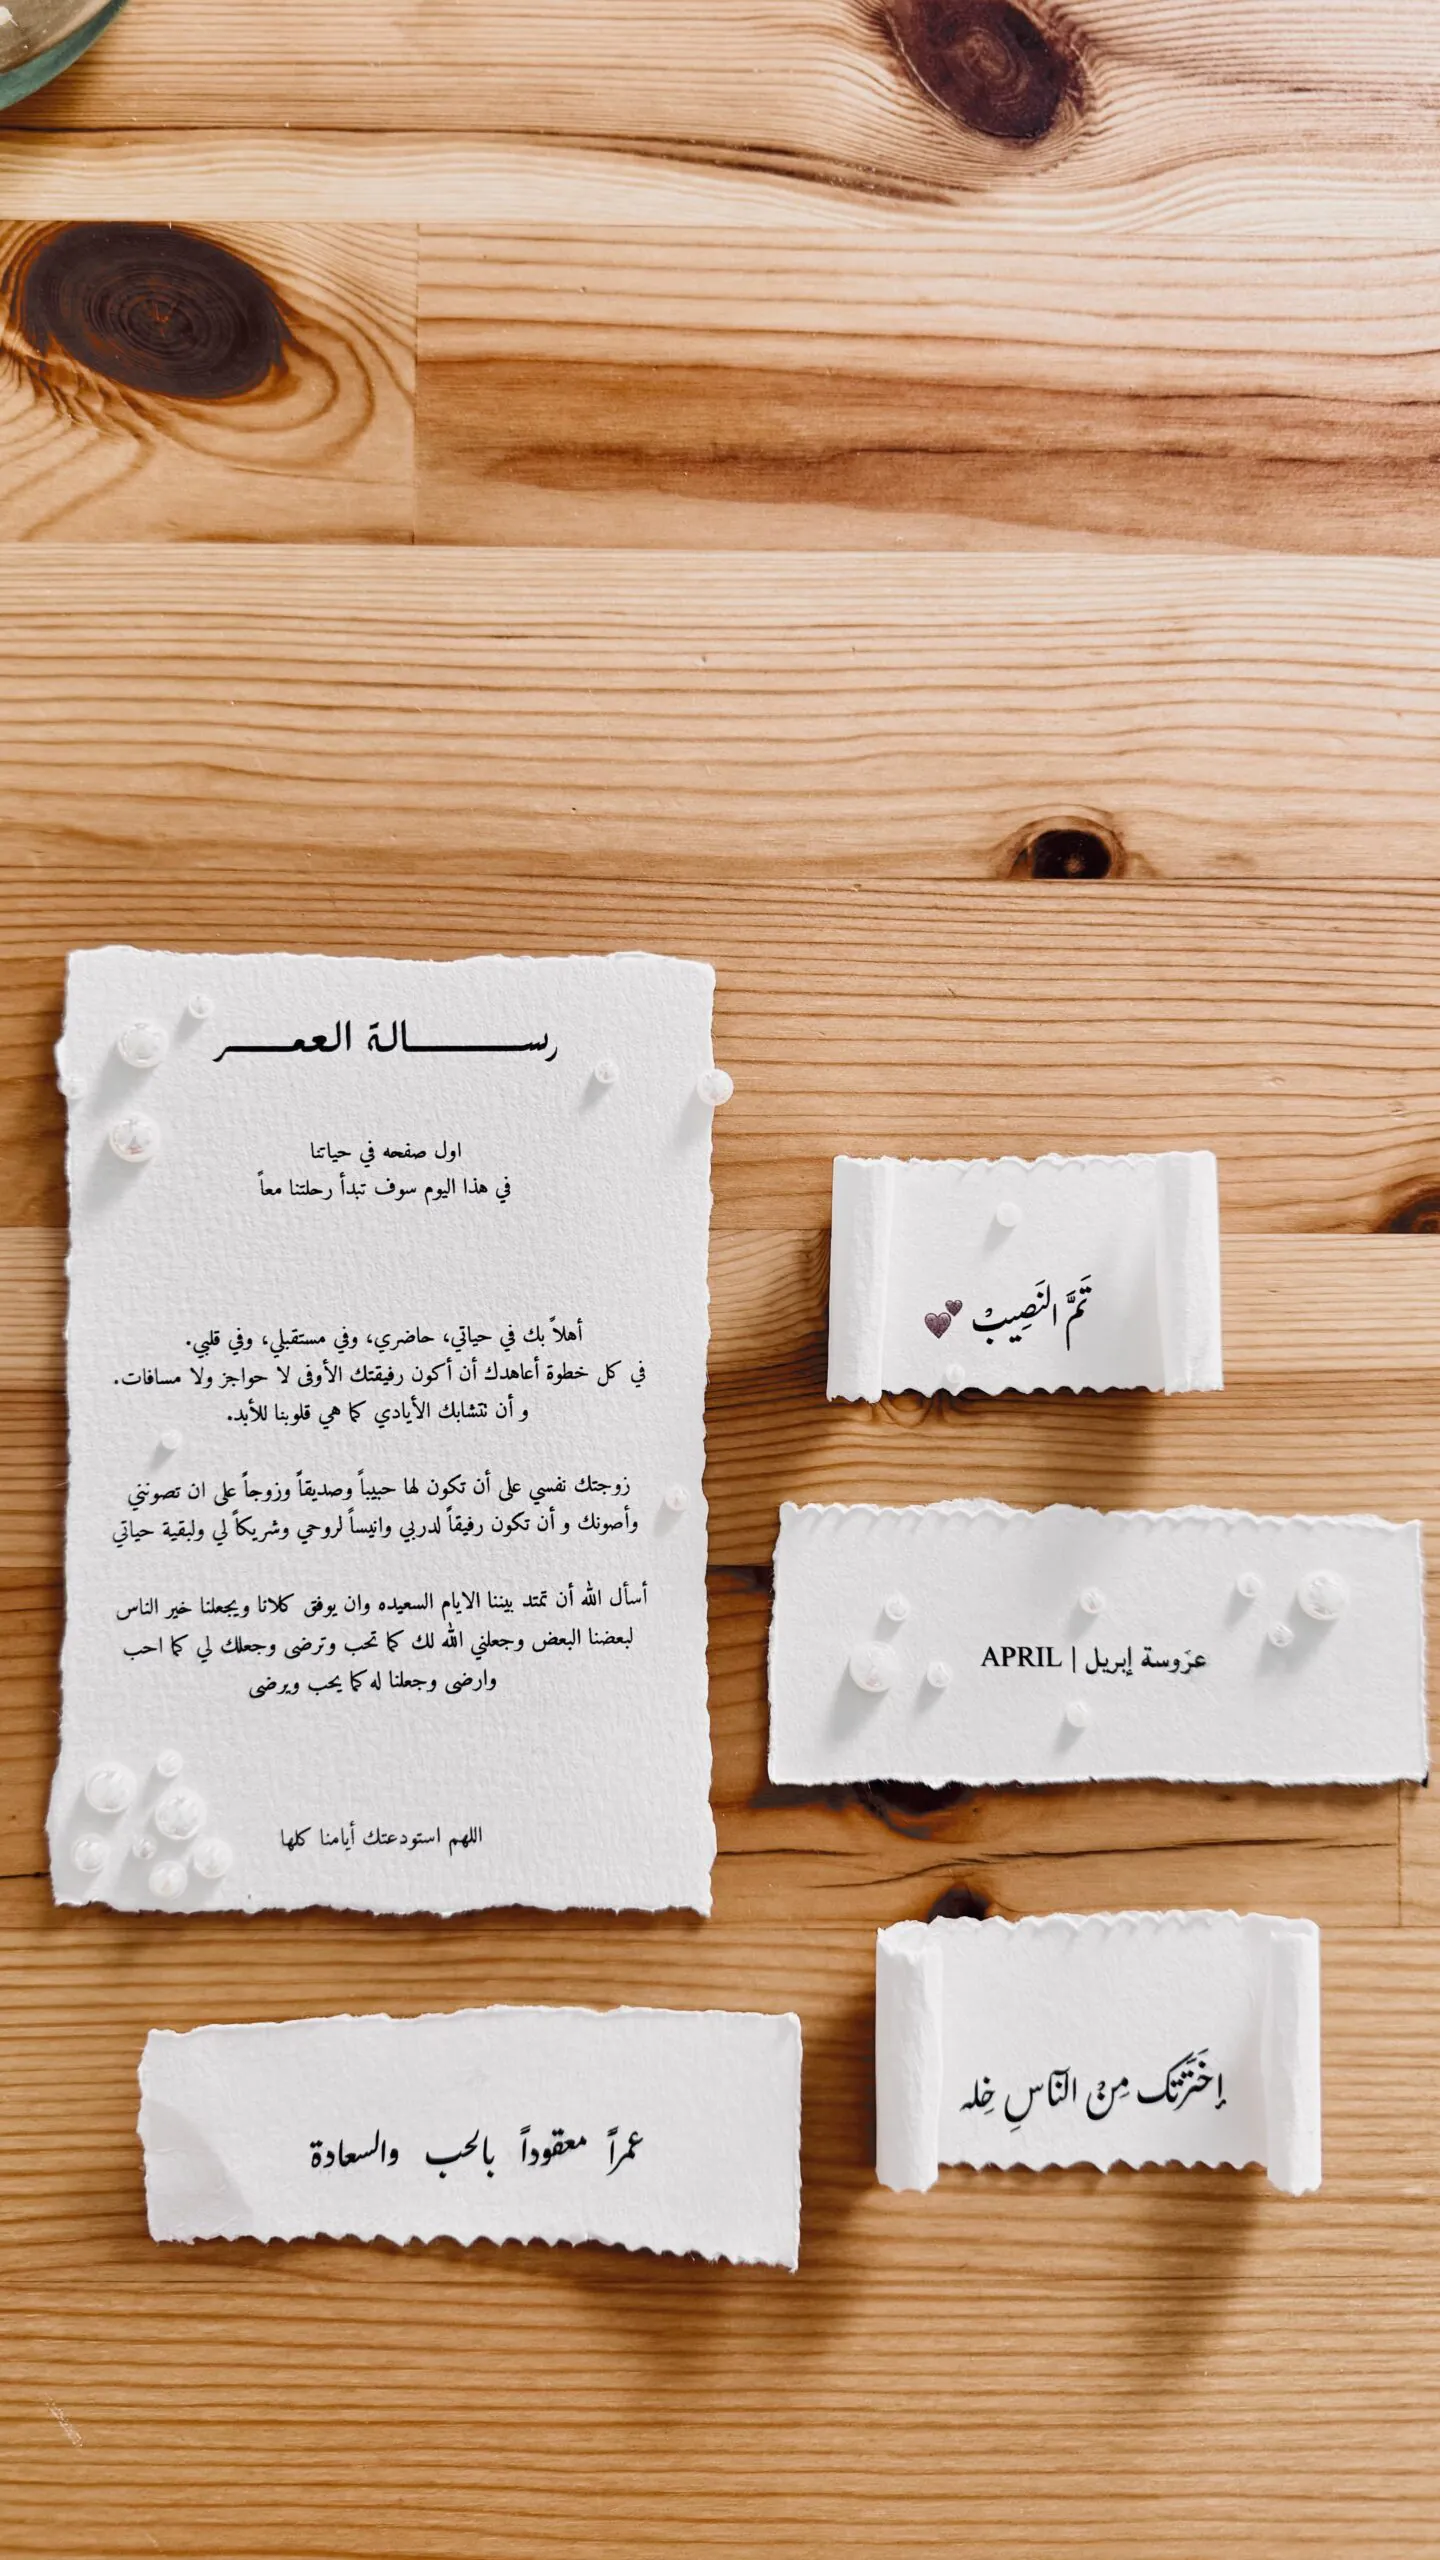 رســـالة العمـــر
اول صفحه في حياتنا
في هذا اليوم سوف تبدأ رحلتنا معاً
أهلاً بك في حياتي، حاضري، وفي مستقبلي، وفي قلبي.
في كل خطوة أعاهدك أن أكون رفيقتك الأوفى لا حواجز ولا مسافات.
و أن نتشابك الأيادي كما هي قلوبنا للأبد.
زوجتك نفسي على أن تكون لها حبيباً وصديقاً وزوجاً على ان تصونني
وأصونك و أن تكون رفيقاً لدربي وانيساً لروحي وشريكاً لي ولبقية حياتي
أسأل الله أن تمتد بيننا الايام السعيده وان يوفق كلانا ويجعلنا خير الناس
لبعضنا البعض وجعلني الله لك كما تحب وترضى وجعلك لي كما احب
وارضى وجعلنا له كما يحب ويرضى
اللهم استودعتك أيامنا كلها
تَمَّ النَصِيبْ 💕
عرَوسة إبريل | APRIL
إخَتَرتَك مِنْ النَاسِ خِله
عمراً معقوداً بالحب والسعادة